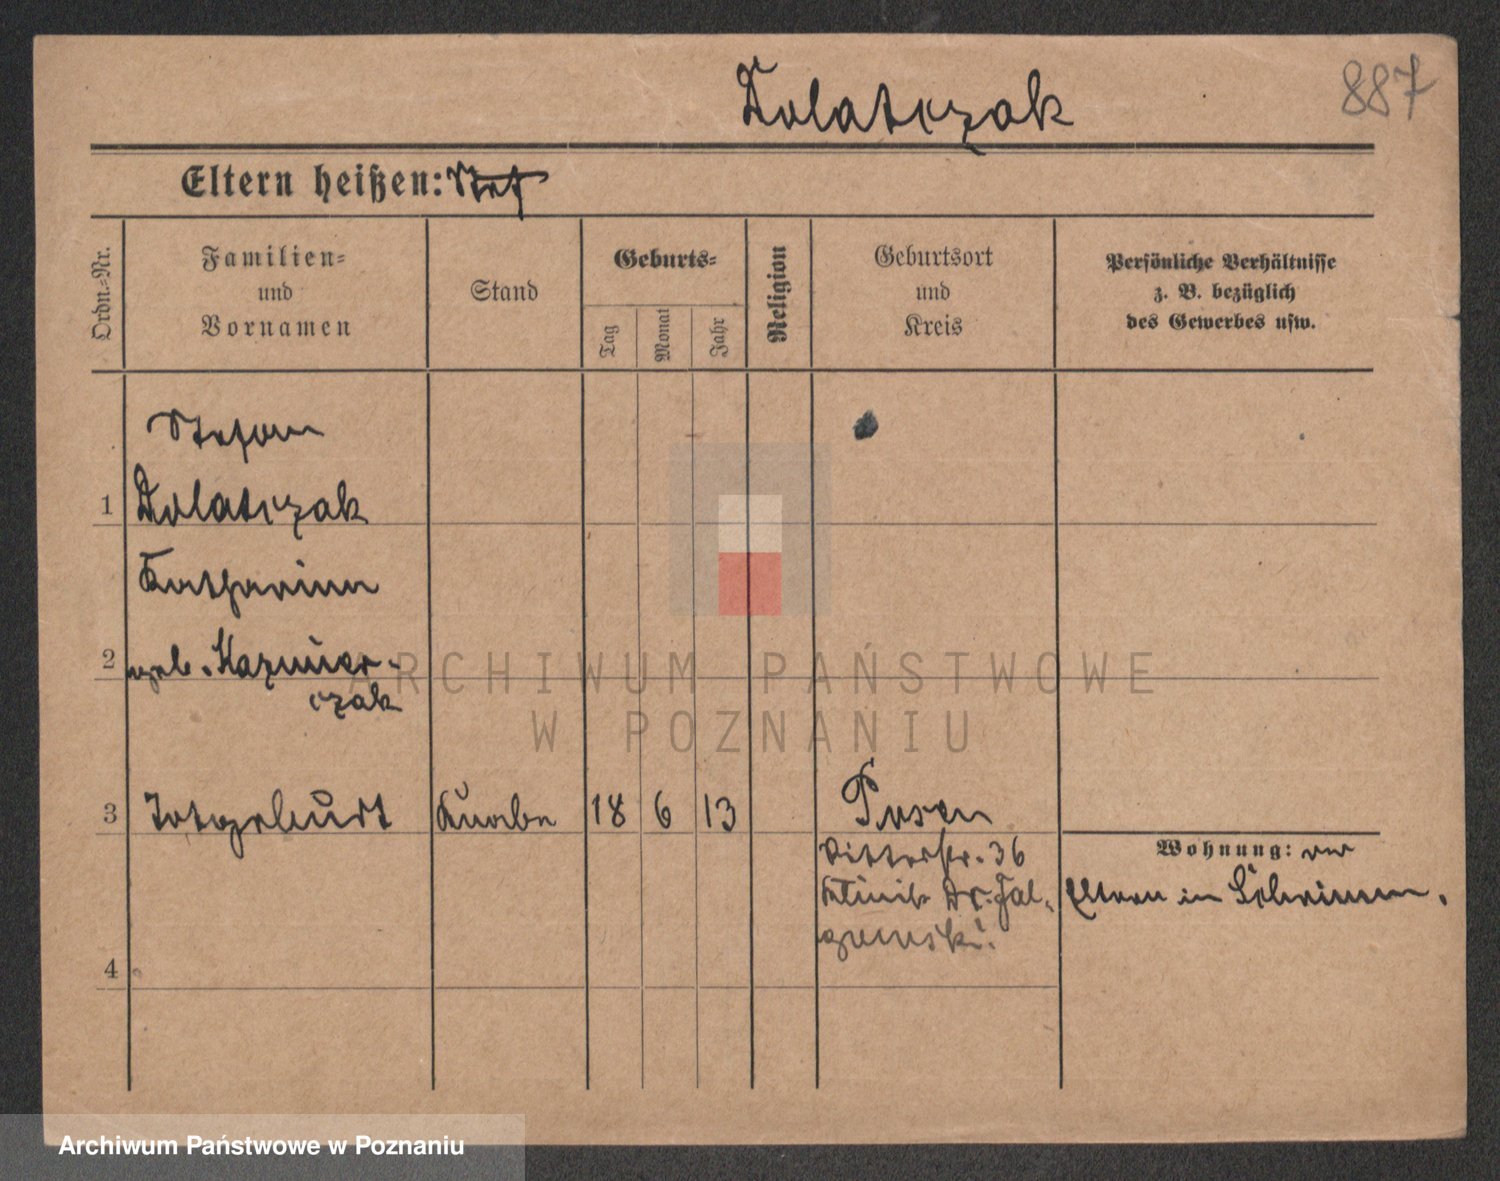 Dolatczak
887
Eltern heißen:
Ordn.-Nr.
Familien-
und
Vornamen
Stand
Geburts-
Tag
Monat
Jahr
Religion
Geburtsort
und
Kreis
Persönliche Verhältnisse
z. B. bezüglich
des Gewerbes usw.
Stefan
1 Dolatczak
Katharina
2 geb. Kazmier-
czak
3 Totgeburt Knabe 18 6 13 Posen
Ritterstr. 36
Klinik Dr.
Wohnung: der
Eltern in Schrimm.
4
ARCHIWUM PAŃSTWOWE
W POZNANIU
Archiwum Państwowe w Poznaniu